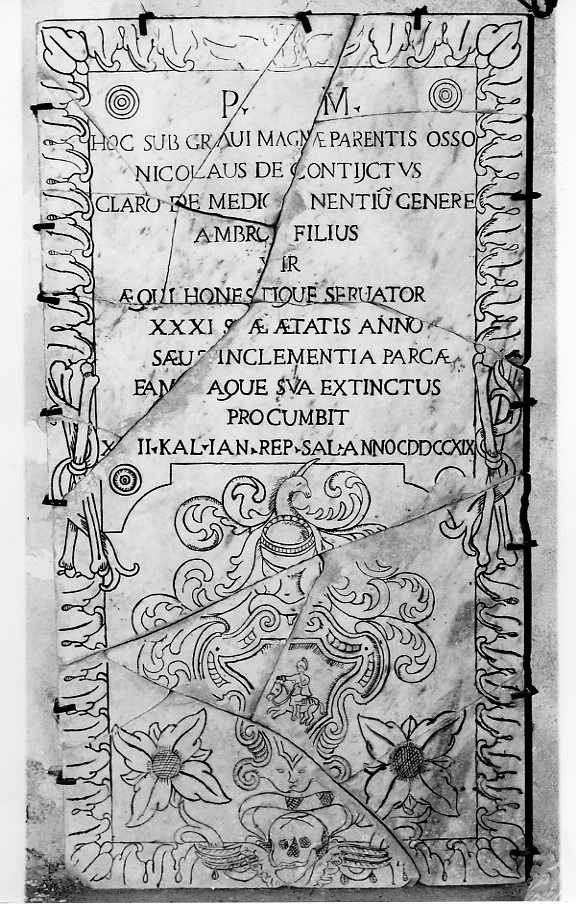 P. M.
HOC SUB GRAUI MAGNÆ PARENTIS OSSO
NICOLAUS DE CONTIJCTVS
CLARO DE MEDIC NENTIŨ GENERE
AMBRO FILIUS
VIR
ÆQUI HONESTIQUE SERUATOR
XXXI SUÆ ÆTATIS ANNO
INCLEMENTIA PARCÆ
FAM AQUE SVA EXTINCTUS
PROCUMBIT
X II·KAL·IAN·REP·SAL·ANNO CDDCCXIX